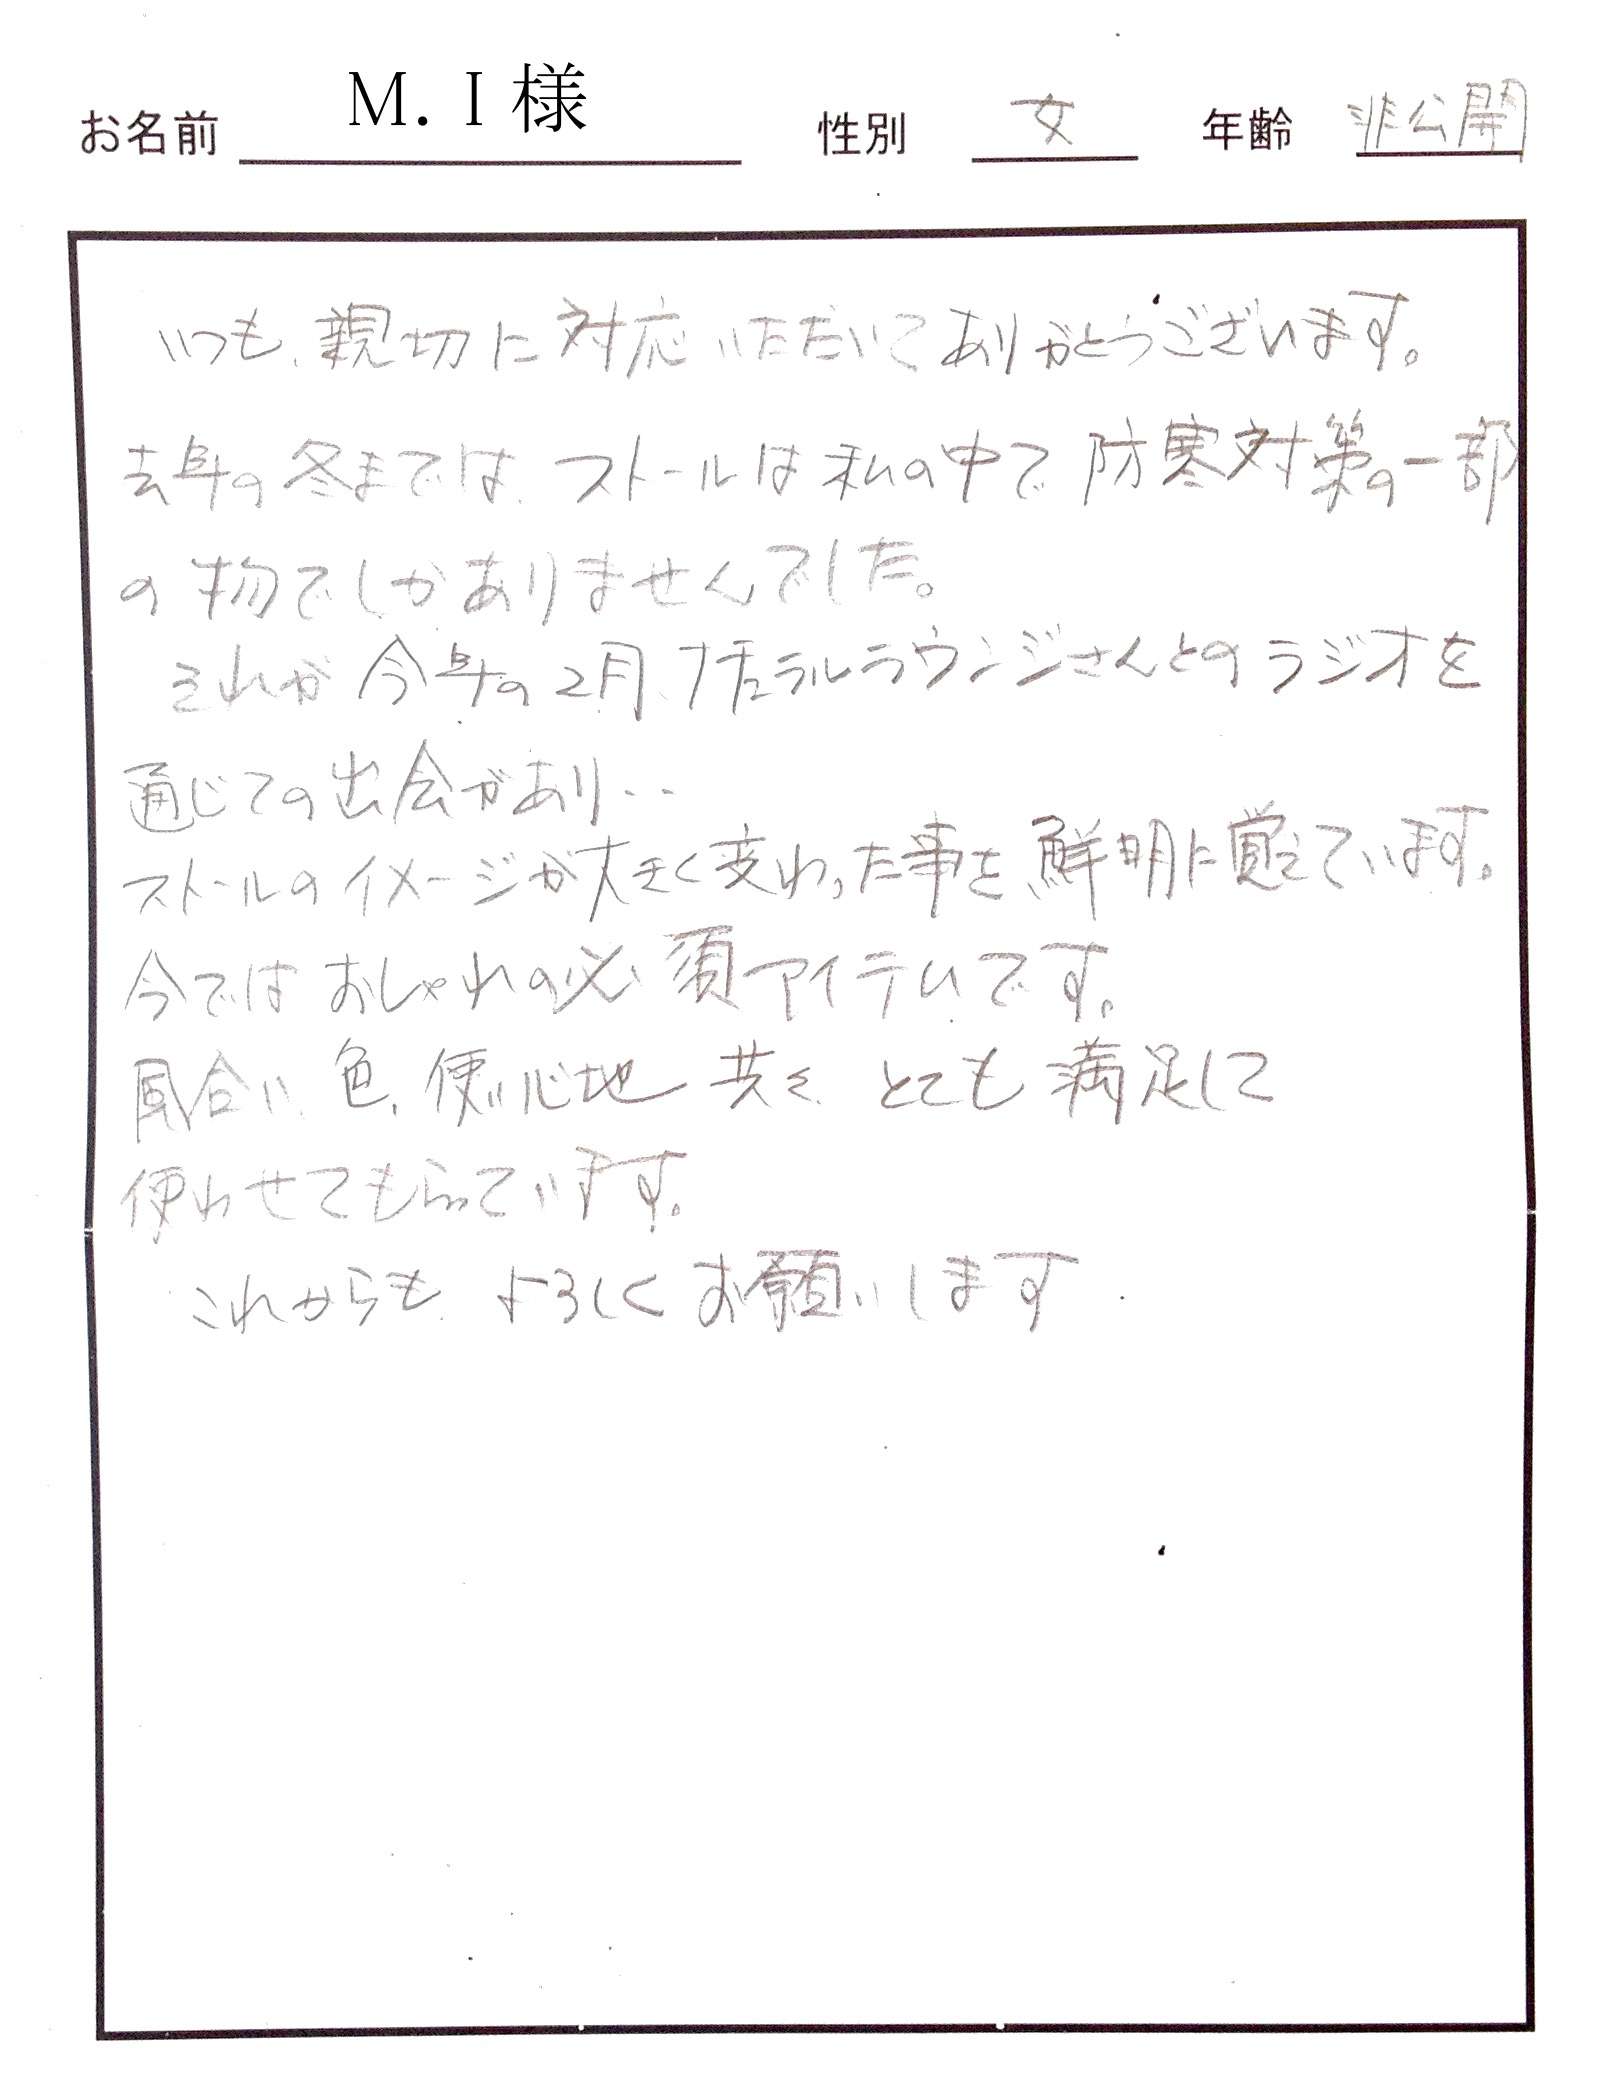 お名前 M. I 様 性別 女 年齢 非公開
いつも、親切に対応いただいてありがとうございます。
去年の冬までは、ストールは私の中で防寒対策の一部
の物でしかありませんでした。
それが今年の2月、ナチュラルラウンジさんとのラジオを
通じての出会があり‥
ストールのイメージが大きく変わった事を、鮮明に覚えています。
今ではおしゃれの必須アイテムです。
風合い、色、使い心地 共に とても満足して
使わせてもらっています。
これからも、よろしくお願いします